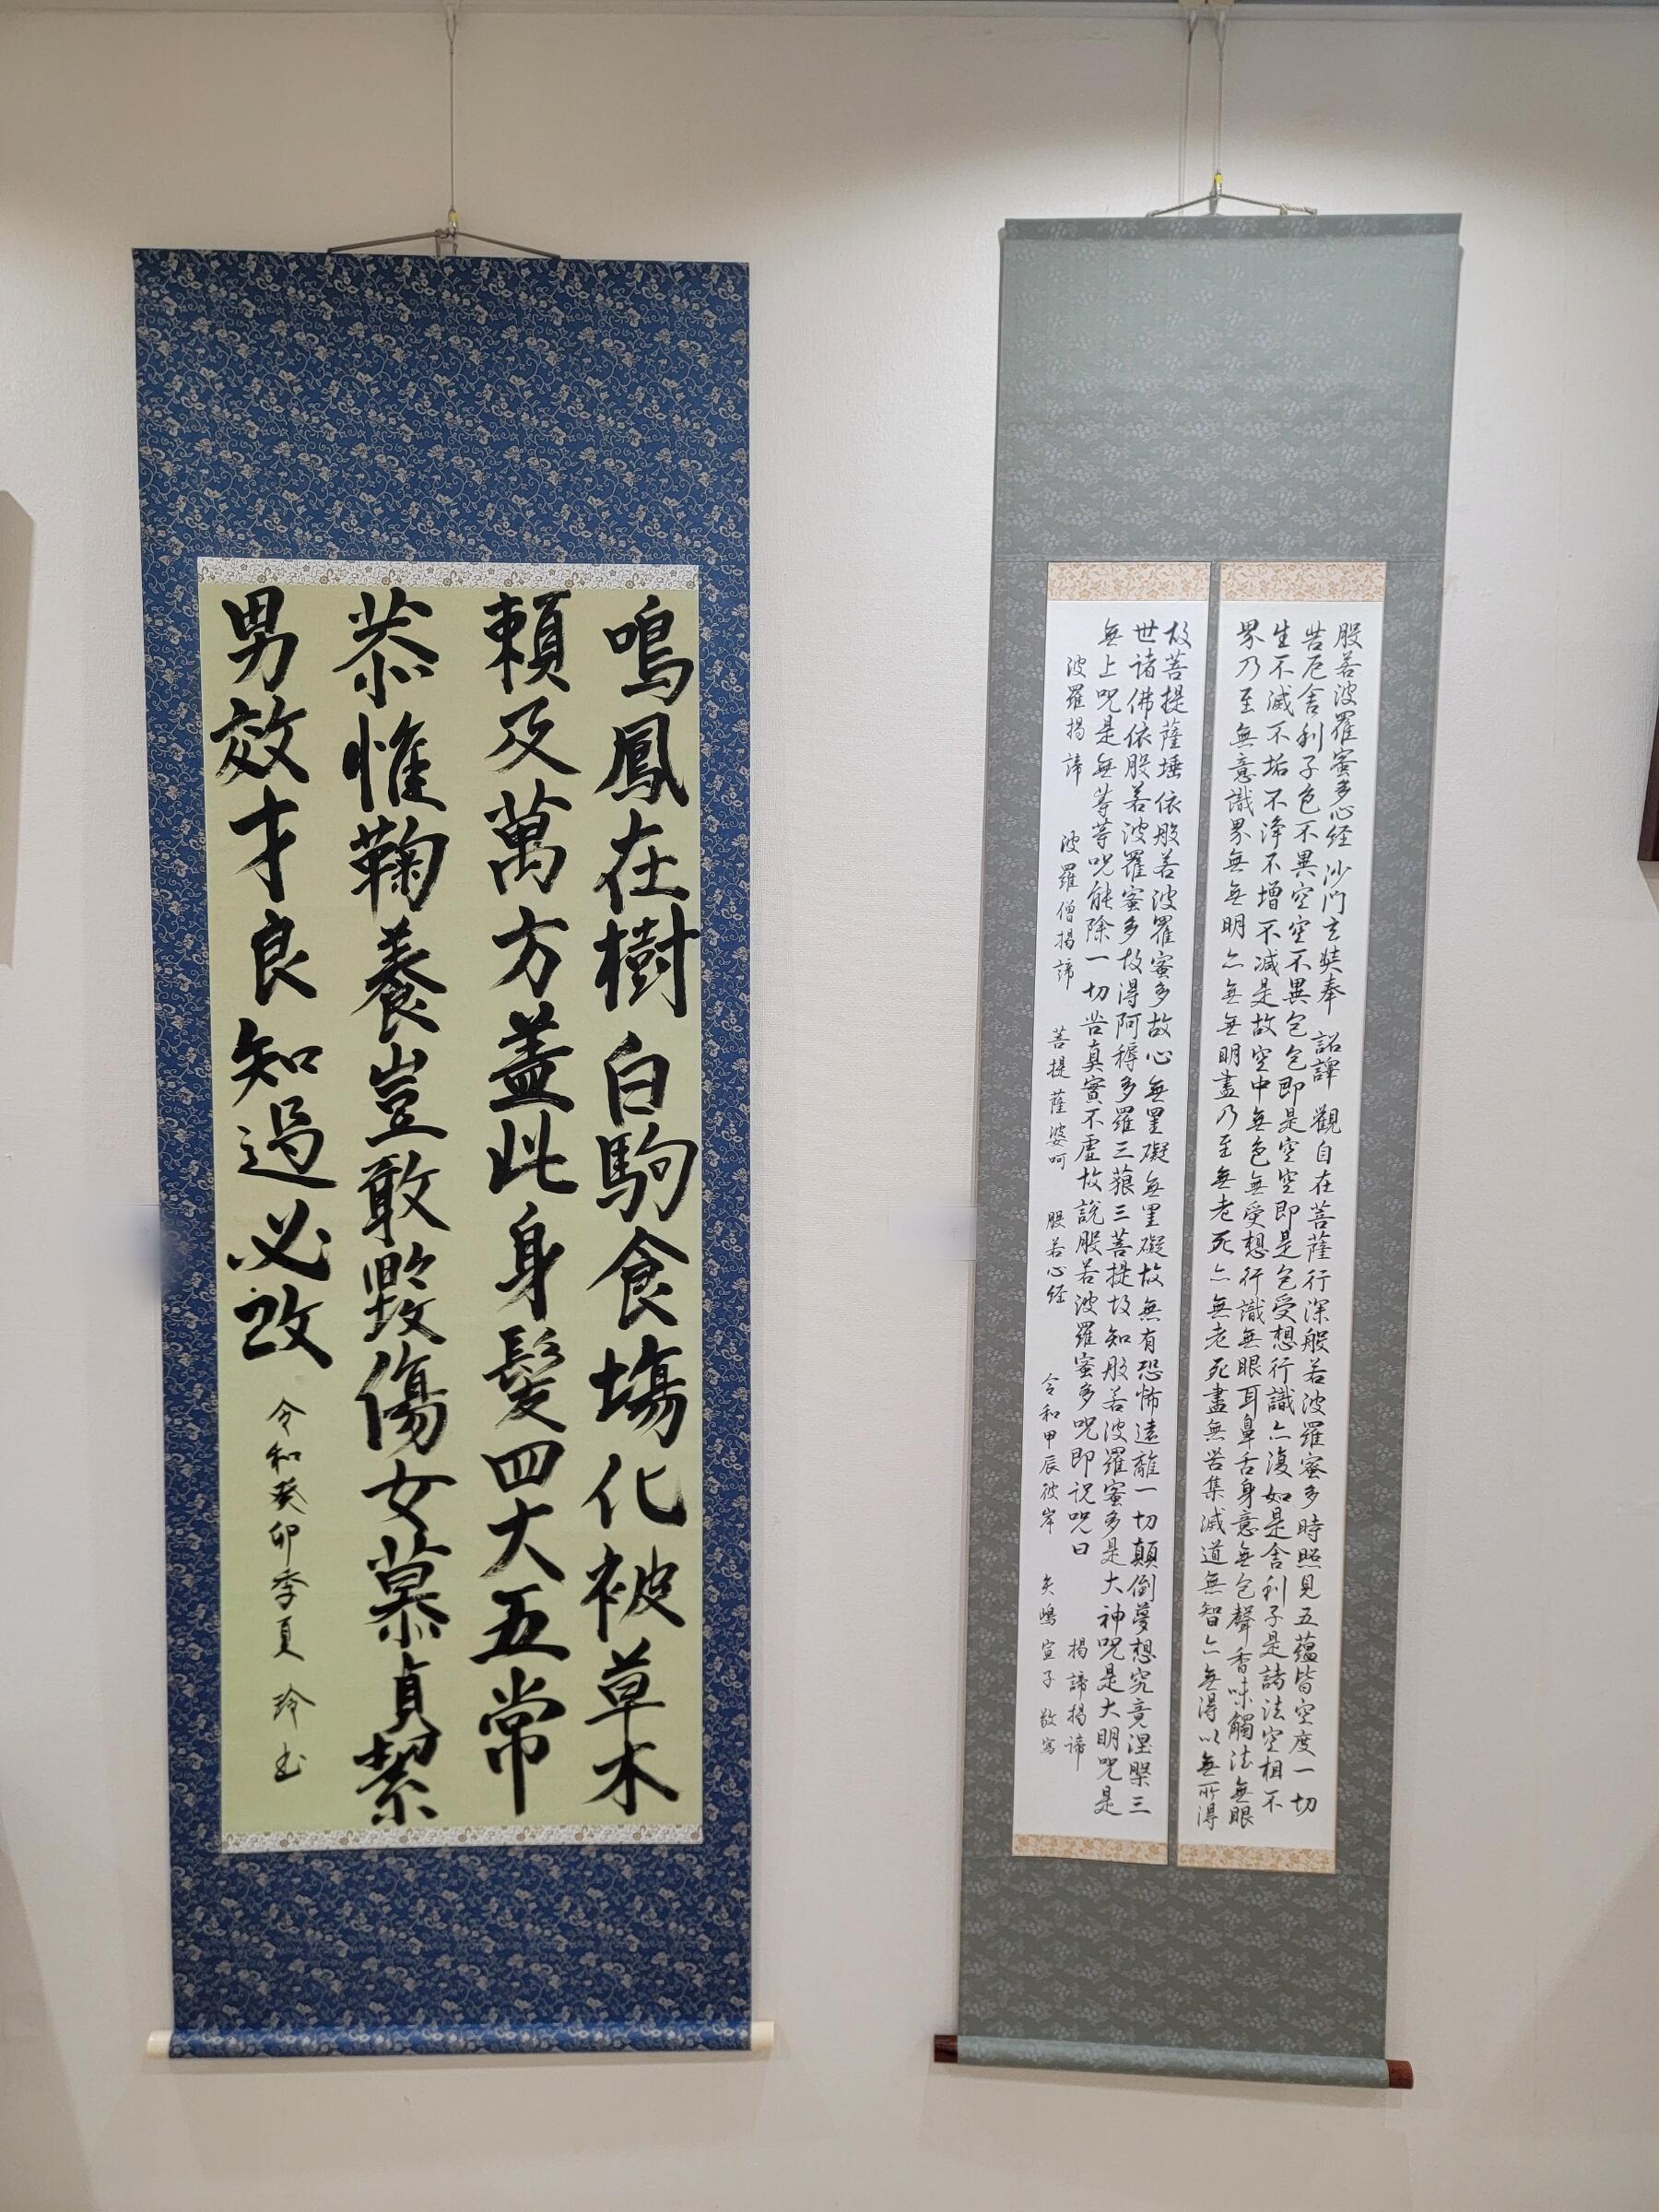 般若波羅蜜多心経 沙門玄奘奉 詔譯 觀自在菩薩行深般若波羅蜜多時照見五蘊皆空度一切
苦厄舎利子色不異空空不異色色即是空空即是色受想行識亦復如是舎利子是諸法空相不
生不滅不垢不浄不増不減是故空中無色無受想行識無眼耳鼻舌身意無色聲香味觸法無眼
界乃至無意識界無無明亦無無明盡乃至無老死亦無老死盡無苦集滅道無智亦無得以無所得
故菩提薩埵依般若波羅蜜多故心無罣礙無罣礙故無有恐怖遠離一切顛倒夢想究竟涅槃三
世諸佛依般若波羅蜜多故得阿耨多羅三藐三菩提故知般若波羅蜜多是大神呪是大明呪是
無上呪是無等等呪能除一切苦真實不虚故説般若波羅蜜多呪即説呪曰 揭諦揭諦
波羅揭諦 波羅僧揭諦 菩提薩婆呵 般若心経 令和甲辰彼岸 矢嶋宣子 敬寫
鳴鳳在樹白駒食場化被草木
頼及萬方蓋此身髪四大五常
恭惟鞠養豈敢毀傷女慕貞絜
男效才良知過必改 令和癸卯季夏 玲書